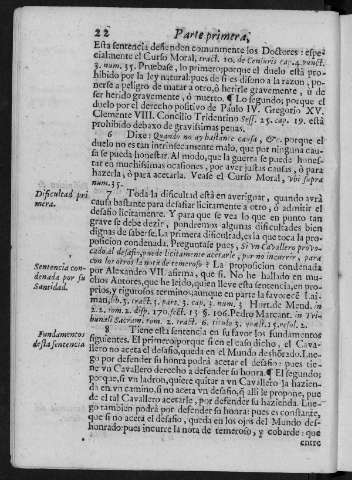 22 Parte primera,
Esta sentencia defienden comunmente los Doctores: espe-
cialmente el Curso Moral, tract. 10. de Censuris cap. 4. punct.
8. num. 35. Pruebase, lo primero: porque el duelo està pro-
hibido por la ley natural: pues de si es disono a la razon, po-
nerse a peligro de matar a otro, ò herirle gravemente, ù de
ser herido gravemente, ò muerto. ¶ Lo segundo; porque el
duelo por el derecho positivo de Paulo IV. Gregorio XV.
Clemente VIII. Concilio Tridentino Sess. 25. cap. 19. està
prohibido debaxo de gravisimas penas.
6 Dixe: Quando no ay bastante causa, &c. porque el
duelo no es tan intrinsecamente malo, que por ninguna cau-
sa se pueda honestar. Al modo, que la guerra se puede hones-
tar en muchisimas ocasiones, por aver justas causas, ò para
hazerla, ò para acetarla. Vease el Curso Moral, ubi supra
num. 35.
Dificultad pri-
mera.
7 Toda la dificultad està en averiguar, quando avrà
causa bastante para desafiar licitamente a otro, ò admitir el
desafio licitamente. Y para que se vea lo que en punto tan
grave se debe dezir, pondremos algunas dificultades bien
dignas de saberse. La primera dificultad, es la que toca la pro-
posicion condenada. Preguntase pues, Si un Cavallero provo-
cado al desafio, puede licitamente acetarle, por no incurrir, para
con los otros la nota de temeroso? La proposicion condenada
Sentencia con-
denada por su
Santidad.
por Alexandro VII. afirma, que si. No he hallado en mu-
chos Autores, que he leido, quien lleve esta sentencia, en pro-
prios, y rigurosos terminos; aunque en parte la favorece Lai-
man, lib. 3. tract. 3. part. 3. cap. 3. num. 3 Hurt. de Mend. in
2.2. tom. 2. disp. 170. sect. 13 § 106. Pedro Marcant. in Tri-
bunali Sacram. tom. 2. tract. 6. titulo 3. quæst. 15. resol. 2.
Fundamentos
desta sentencia
8 Tiene esta sentencia en su favor los fundamentos
siguientes. El primero: porque si en el caso dicho, el Cava-
llero no aceta el desafio, queda en el Mundo deshõrado. Lue-
go por defender su honra podrà acetar el desafio: pues tie-
ne un Cavallero derecho a defender su honra. ¶ El segundo;
porque, si un ladron, quiere quitar a un Cavallero la hazien-
da en un camino, si no aceta un desafio, q̃ alli le propone, pue-
de el tal Cavallero acetarle, por defender su hazienda. Lue-
go tambien podrà por defender su honra: pues es constante,
que si no aceta el desafio, queda en los ojos del Mundo des-
honrado: pues incurre la nota de temeroso, y cobarde: que
entre